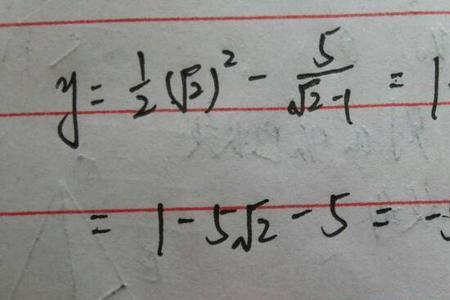 y = 1/2 (√2)² - 5/(√2-1) = 1
= 1 - 5√2 - 5 = -